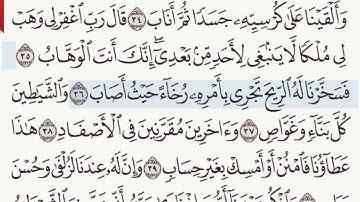 وَأَلْقَيْنَا عَلَىٰ كُرْسِيِّهِۦ جَسَدًا ثُمَّ أَنَابَ ٣٤ قَالَ رَبِّ ٱغْفِرْ لِى وَهَبْ
لِى مُلْكًا لَّا يَنۢبَغِى لِأَحَدٍ مِّنۢ بَعْدِىٓ إِنَّكَ أَنتَ ٱلْوَهَّابُ ٣٥
فَسَخَّرْنَا لَهُ ٱلرِّيحَ تَجْرِى بِأَمْرِهِۦ رُخَآءً حَيْثُ أَصَابَ ٣٦ وَٱلشَّيَٰطِينَ
كُلَّ بَنَّآءٍ وَغَوَّاصٍ ٣٧ وَءَاخَرِينَ مُقَرَّنِينَ فِى ٱلْأَصْفَادِ ٣٨ هَٰذَا
عَطَآؤُنَا فَٱمْنُنْ أَوْ أَمْسِكْ بِغَيْرِ حِسَابٍ ٣٩ وَإِنَّ لَهُۥ عِندَنَا لَزُلْفَىٰ وَحُسْنَ